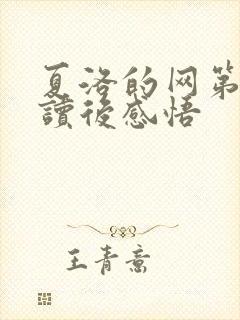 夏洛的网第
讀後感悟
王青意